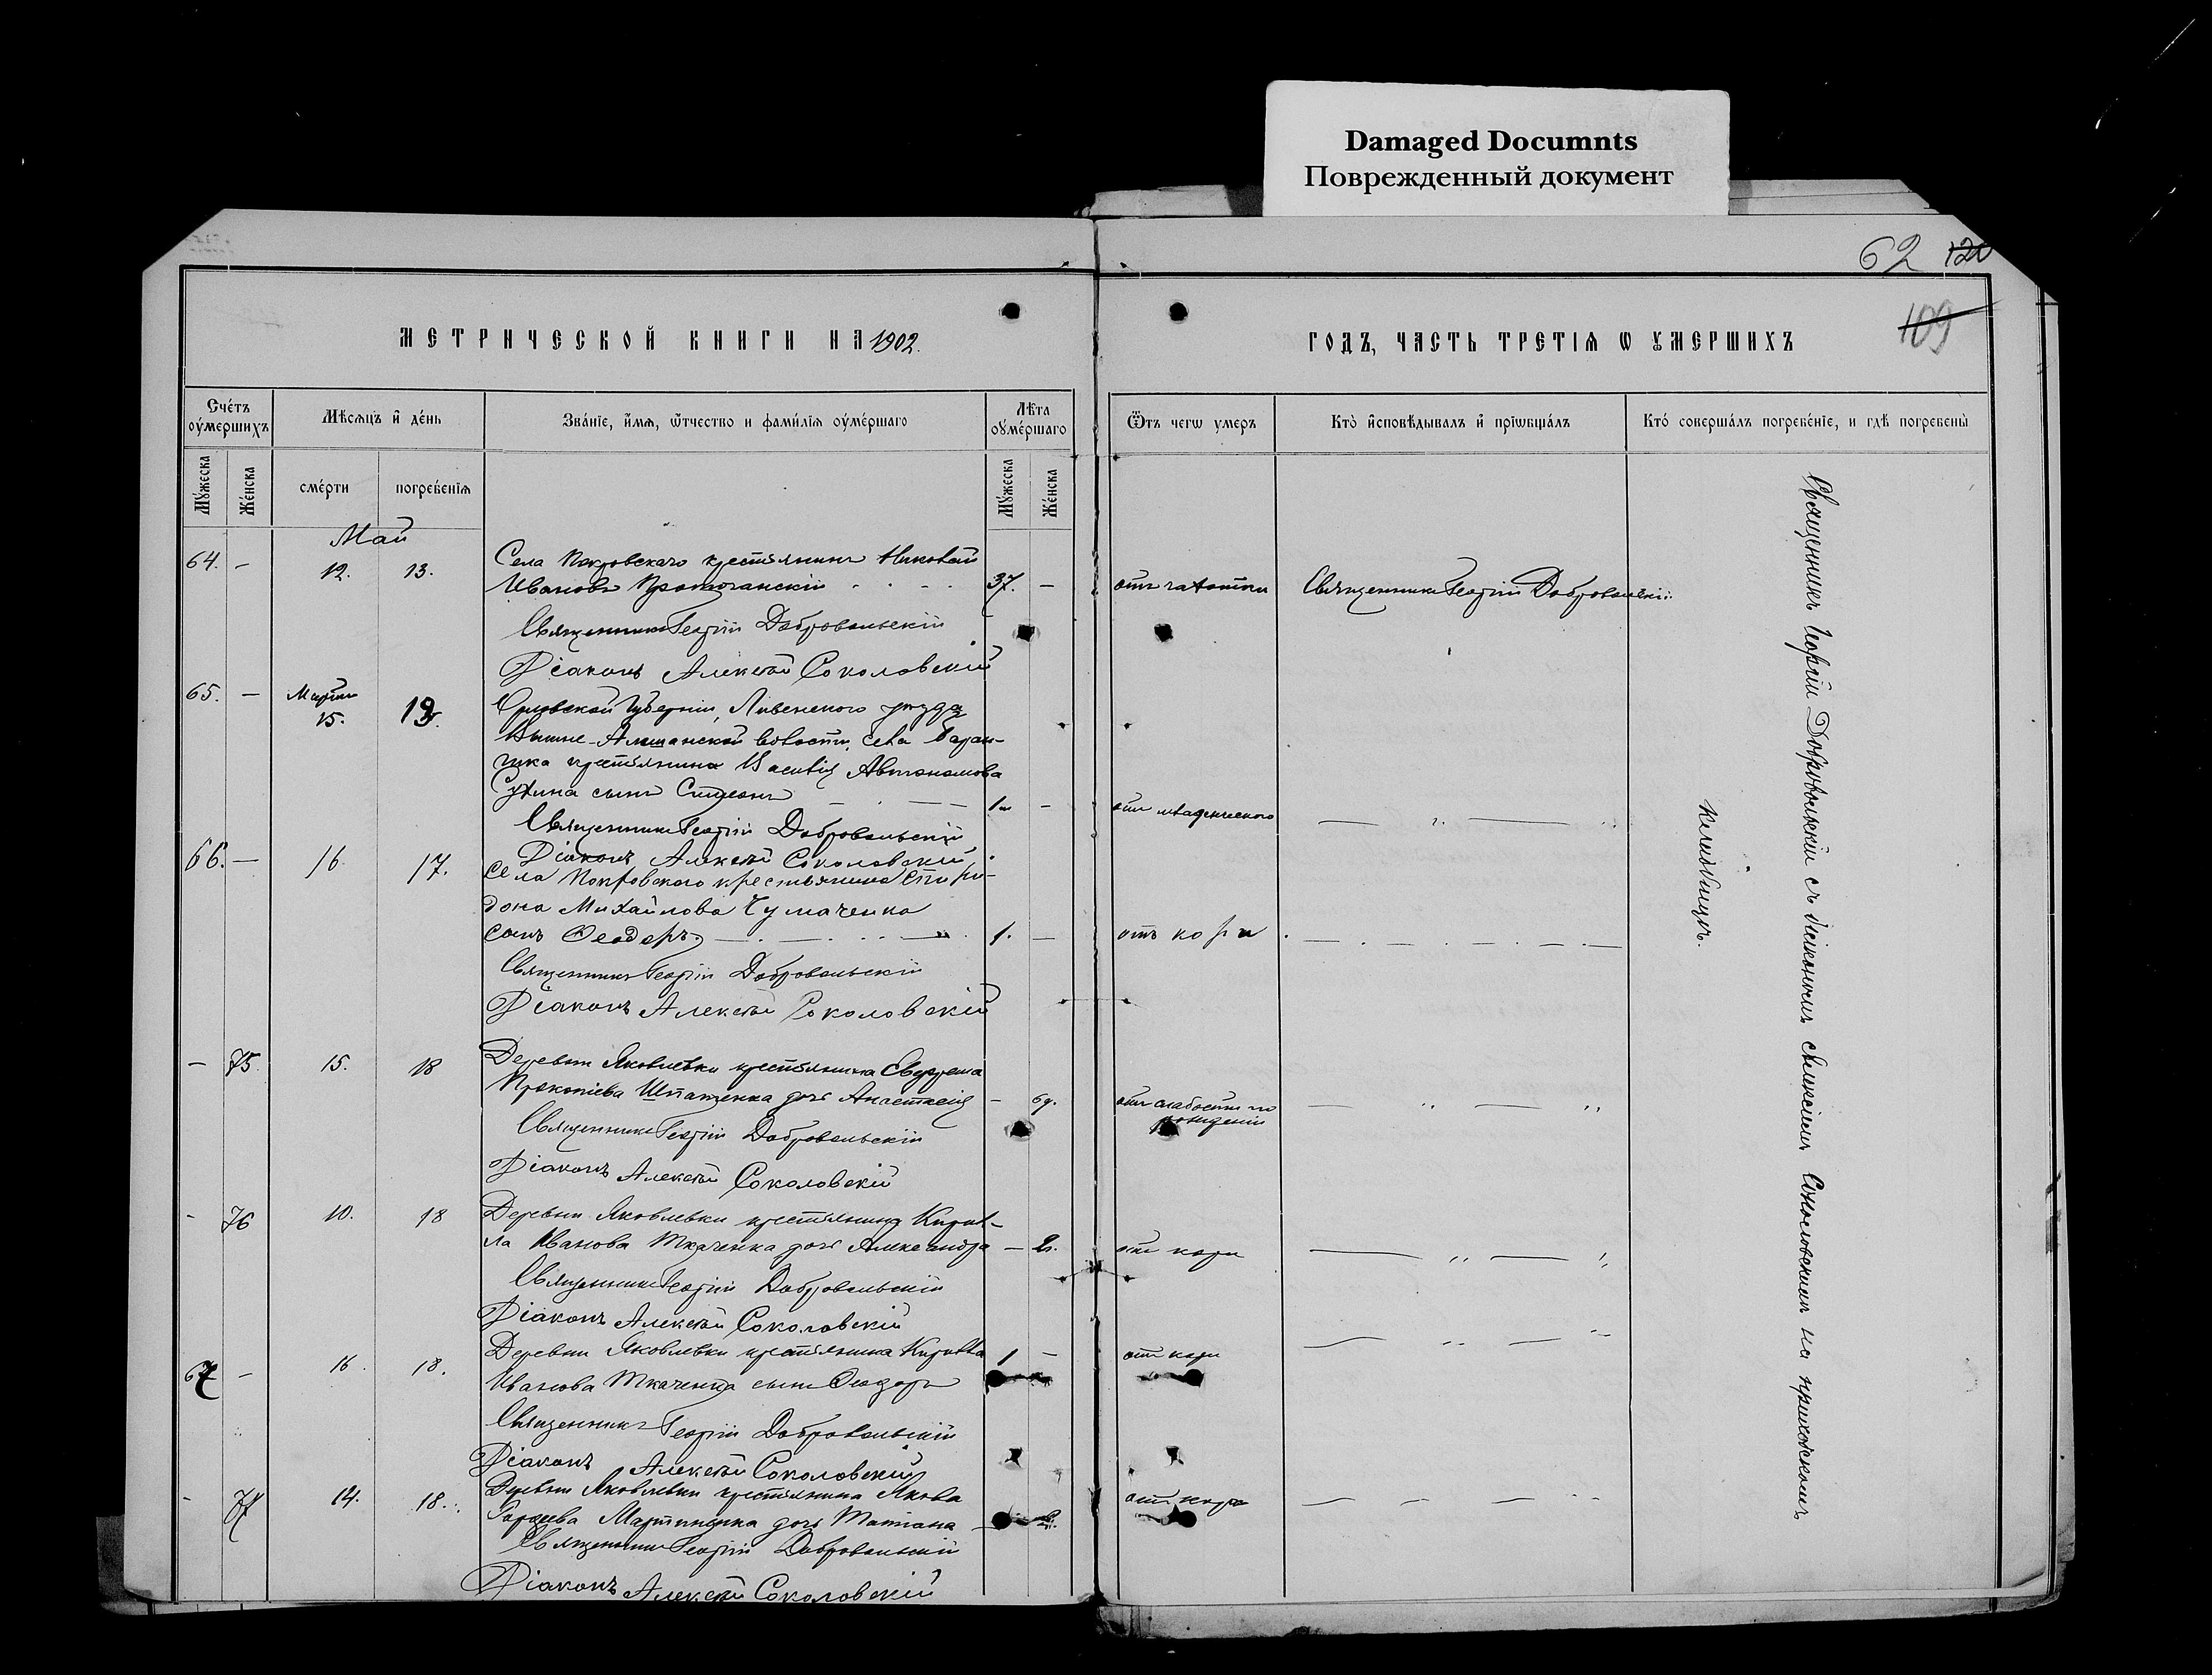 Damaged Documnts
Поврежденный документ
62 120
109
МЕТРИЧЕСКОЙ КНИГИ НА 1902.
ГОДЪ, ЧАСТЬ ТРЕТІѦ Ѡ УМЕРШИХЪ
Счетъ оумершихъ
Мѣсяцъ и день
Званіе, имя, отчество и фамилія оумершаго
Лѣта оумершаго
Отъ чегѡ умеръ
Кто исповѣдывалъ и пріѡбщалъ
Кто совершалъ погребеніе, и гдѣ погребены
Мужеска
Женска
смерти
погребенія
Мужеска
Женска
Май
64. - 12. 13. Села Покровскаго крестьянинъ Николай
Ивановъ 37. - отъ чахотки Священникъ Георгій Добровольскій
Священникъ Георгій Добровольскій
Діаконъ Алексѣй Соколовскій
65. - 15. Орловской Губерніи, Ливенскаго уѣзда
волости, села Баран-
чика крестьянина Василія Автономова
сынъ Симеонъ - отъ младенческаго
Священникъ Георгій Добровольскій
Діаконъ Алексѣй Соколовскій
66. - 16 17. Села Покровского крестьянина Спири-
дона Михайлова Чумаченка
сынъ Ѳеодоръ 1. - отъ кори
Священникъ Георгій Добровольскій
Діаконъ Алексѣй Соколовскій
- 75 15. 18 Деревни Яковлевки крестьянина
Прокопіева дочь Анастасія - отъ слабости по
рожденіи
Священникъ Георгій Добровольскій
Діаконъ Алексѣй Соколовскій
- 76 10. 18 Деревни Яковлевки крестьянина Кирил-
ла Иванова Ткаченка дочь Александра - отъ кори
Священникъ Георгій Добровольскій
Діаконъ Алексѣй Соколовскій
67 - 16. 18. Деревни Яковлевки крестьянина Кирилла 1 - отъ кори
Иванова Ткаченка сынъ Ѳеодоръ
Священникъ Георгій Добровольскій
Діаконъ Алексѣй Соколовскій
- 77 14. 18. Деревни Яковлевки крестьянина Якова отъ кори
Мартиненка дочь Татіана
Священникъ Георгій Добровольскій
Діаконъ Алексѣй Соколовскій
Священникъ Георгій Добровольскій съ діакономъ Алексіемъ Соколовскимъ на приходскомъ
кладбищѣ.